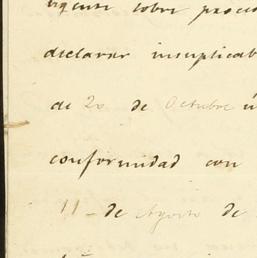 sobre proce
declarar insuplicab
de 20 de Octubre ú
conformidad con
11 - de Agosto de